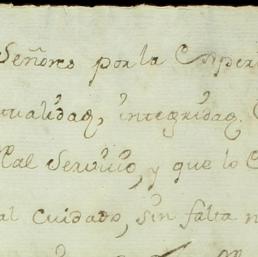 Señores por la Esper
tualidad, integridad.
Real Servicio, y que lo
al Cuidado, sin falta